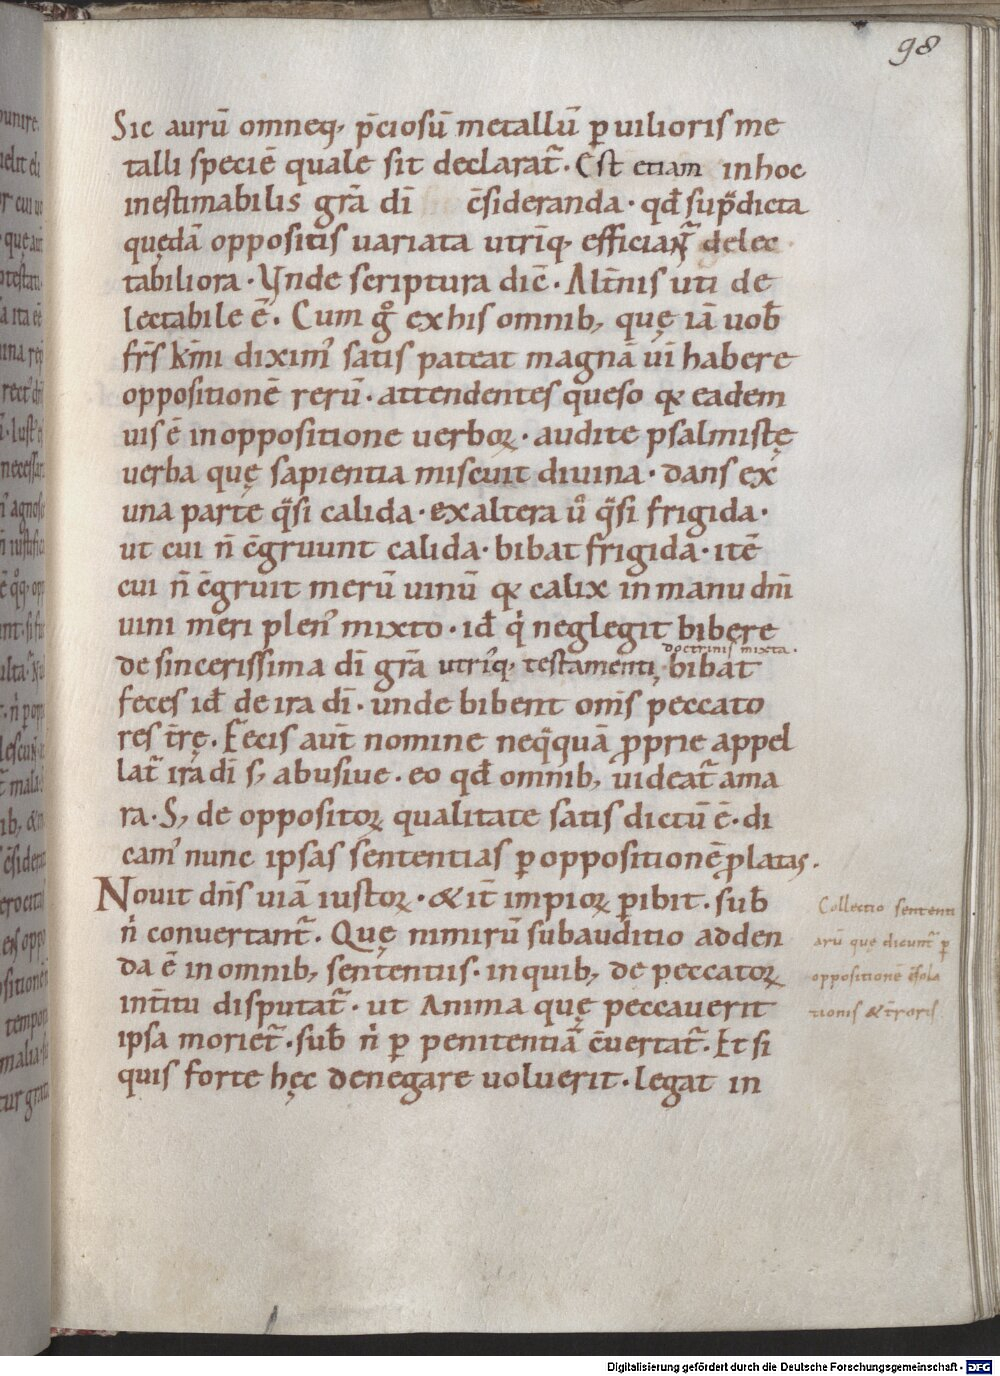 98
Sic aurū omneq; p̄ciosū metallū ꝑ uilioris me
talli speciē quale sit declarat̄. Est etiam in hoc
inestimabilis gr̄a dī c̄sideranda. qd̄ sup̄dicta
quędā oppositis uariata utriq; efficiant̄ delec
tabiliora. Vnde scriptura dic̄. Alt̄nis uti de
lectabile ē. Cum gͦ ex his omnib; quę iā uob̄
fr̄s k̄mi diximꝰ satis pateat magnā uim̄ habere
oppositionē rerū. attendentes queso qꝫ eadem
uis ē in oppositione uerboꝝ. audite psalmistę
uerba quę sapientia miscuit diuina. dans ex
una parte qͣsi calida. ex altera uͦ qͣsi frigida.
ut cui n̄ c̄gruunt calida. bibat frigida. itē
cui n̄ c̄gruit merū uinū qꝫ calix in manu dn̄i
uini meri plenꝰ mixto. id̄ qͥ neglegit bibere
doctrinis mixta.
de sincerissima dī gr̄a utriꝰq; testamenti bibat
feces id̄ de ira dī. unde bibent om̄s peccato
res t̄rę. Fecis aut̄ nomine neqͣquā ꝓprie appel
lat̄ ira dī s; abusiue. eo qd̄ omnib; uideat̄ ama
ra. S; de oppositoꝝ qualitate satis dictū ē. di
camꝰ nunc ipsas sententias ꝑ oppositionē ꝓlatas.
Nouit dn̄s uiā iustoꝝ. & it̄ impioꝝ ꝑibit. sub̄
nͥ conuertant̄. Quę nimirū subauditio adden
da ē in omnib; sententiis. in quib; de peccatoꝝ
int̄itu disputat̄. ut Anima quę peccauerit
ipsa moriet̄. sub̄ nͥ ꝑ penitentiā c̄uertat̄. Et si
quis forte hęc denegare uoluerit. legat in
Collectio sententi
arū quę dicunt̄ ꝑ
oppositionē c̄sola
tionis & t̄roris
Digitalisierung gefördert durch die Deutsche Forschungsgemeinschaft - DFG